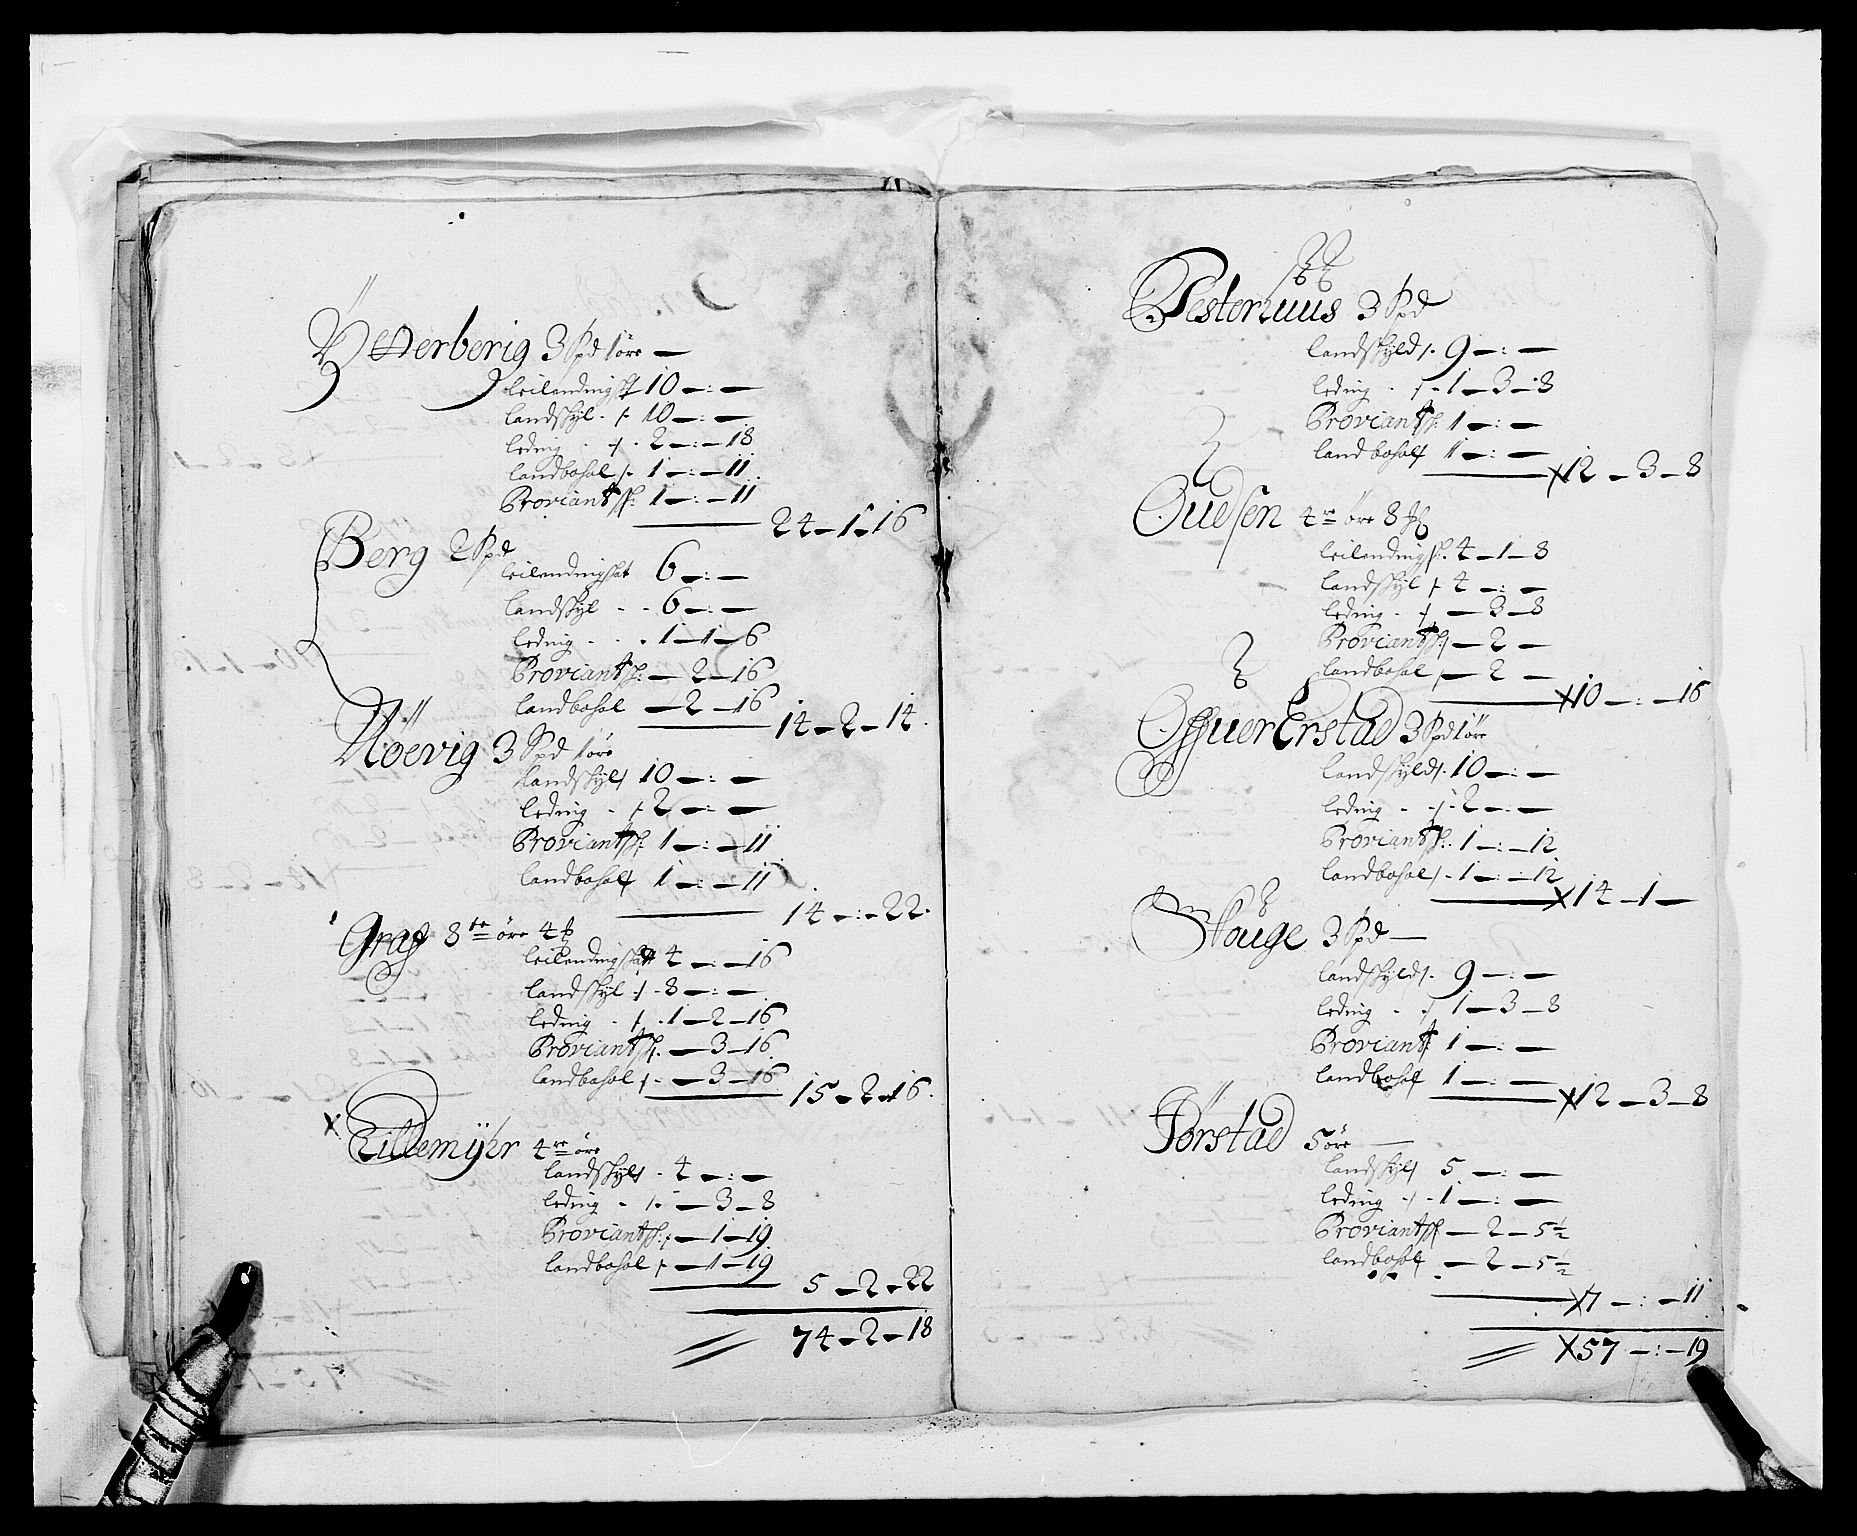 Ytterberig 3 Spd 1 øre —
leilendingsk 10 — : —
landskyl . /. 10 — : —
leding . /. . 2 — : — 18
landbohol /. 1 — : — 11
Proviantsk: 1 — : — 11
24 — 1 — 16
Berg 2 Spd
leilendingskat 6 — : —
landskyl . . 6 — : —
leding . . . 1 — 1 — 6
Proviantsk: — 2 — 16
landbohol — 2 — 16
14 — 2 — 14 .
Höevig 3 Spd 1 øre
landskyl 10 — : —
leding . /. 2 — : —
Proviantsk: 1 — : — 11
landbohol 1 — : — 11
14 — : — 22 .
Graf 8te øre 4
leilendingskat 4 — : — 16
landskyl /. 8 — : —
leding . /. . 1 — 2 — 16
Proviantsk. — 3 — 16
landbohol /. — 3 — 16
15 — 2 — 16 .
x Lillemyhr 4re øre
landskyl . 4 — : —
leding . /. — 3 — 8
Proviantsk: — 1 — 19
landbohol /. — 1 — 19
5 — 2 — 22
74 — 2 — 18
Vesterhuus 3 Spd
landskyld /. 9 — : —
leding . /. 1 — 3 — 8
Proviantsk: 1 — : —
landbohol 1 — : —
x 12 — 3 — 8
Oudsen 4re øre 8
leilendingsk. 4 — 1 — 8
landskyl /. 4 — : —
leding . /. — 3 — 8
Proviantsk — 2 —
landbohol /. — 2 —
x 10 — : — 16
Offuer Erstad 3 Spd 1 øre
landskyld /. 10 — : —
leding . /. 2 — : —
Proviantsk: 1 — : — 12
landbohol /. 1 — : — 12
x 14 — 1 —
Houge 3 Spd —
landskyld /. 9 — : —
leding . /. 1 — 3 — 8
Proviant 1 — : —
landbohol 1 — : —
x 12 — 3 — 8
Förstad 5 øre —
landskyl 5 — : —
leding . /. 1 — : —
Proviantsk — 2 — 5½
landbohol — 2 — 5½
x 7 — : — 11
x 57 — : — 19